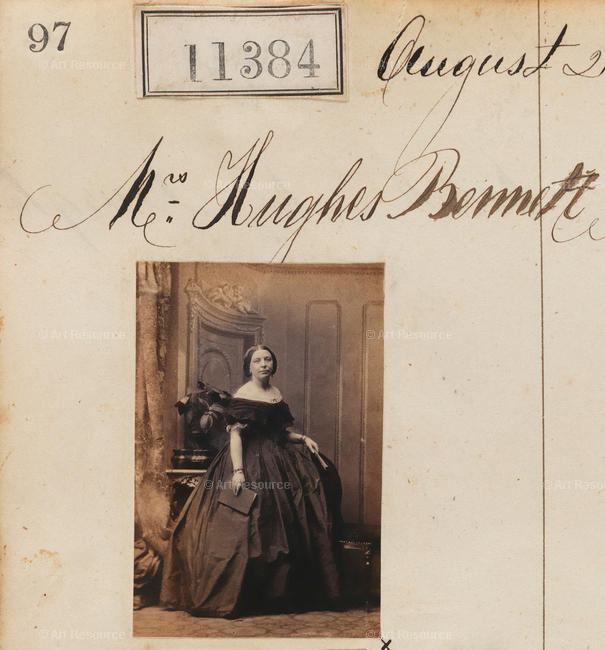 97
11384
August 2
Mrs Hughes Bennett
x
© Art Resource
© Art Resource
© Art Resource
© Art Resource
© Art Resource
© Art Resource
© Art Resource
© Art Resource
© Art Resource
© Art Resource
© Art Resource
© Art Resource